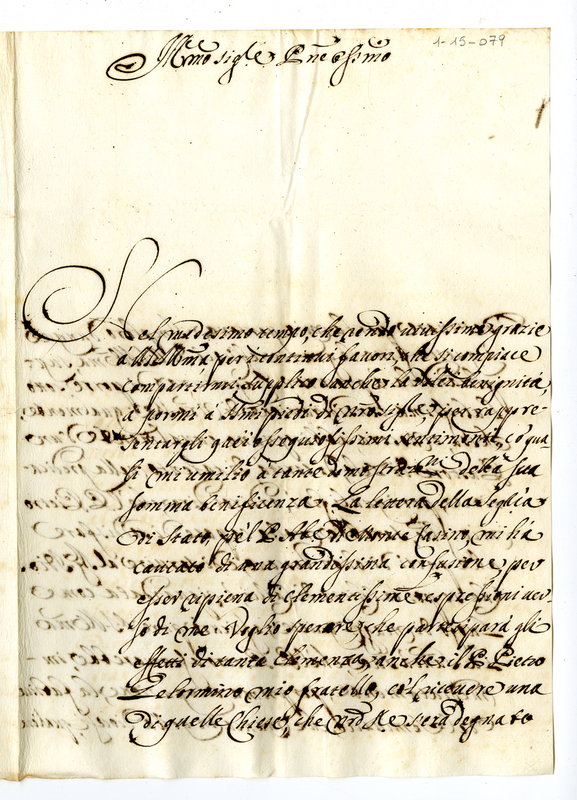 1-15-079
Illmo sig.re Pne Ossmo
Nel medesimo tempo, che rendo vivissime grazie
a V.S. Illma per i continui favori, che si compiace
compartirmi, supplico anche la di lei benignità,
a pormi a piedi di e per rappre-
sentargli gli ossequiosissimi sentimenti, co' qua-
li mi umilio a tante dimostraz.ni della sua
somma beneficenza. La lettera della Seg.ria
di Stato, p el P. Ab.e di Monte Casino, mi hà
causato di una grandissima confusione per
esser ripiena di clementissime espressioni ver-
so di me. Voglio sperare, che participarà gli
effetti di tanta clemenza, anche il P. Pietro
mio fratello, col ricevere una
di quelle Chiese, che serà degnato